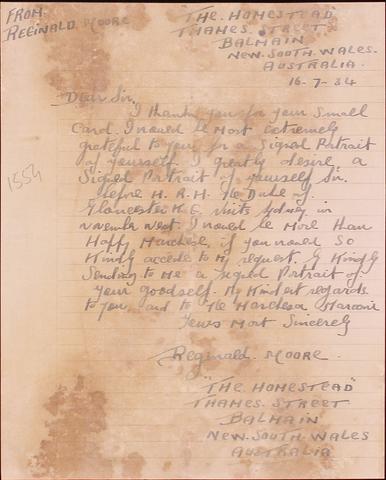 FROM
REGINALD MOORE
"THE HOMESTEAD"
THAMES STREET
BALMAIN
NEW. SOUTH. WALES.
AUSTRALIA.
16-7-34
Dear Sir,
I thank you for your Small
Card. I would be most extremely
grateful to you, for a Signed Portrait
of yourself. I greatly desire a
Signed Portrait of yourself Sir.
before H. R. H. The Duke of.
Gloucester K.G. visits Sydney in
November next. I would be more than
Happy Marchese, if you would So
Kindly accede to my request, by Kindly
Sending to me a Signed Portrait of
your goodself. My Kindest regards
to you, and to The Marchesa Marconi
Yours Most Sincerely
Reginald. MOORE.
1554
"THE. HOMESTEAD"
THAMES. STREET
BALMAIN
NEW. SOUTH. WALES
AUSTRALIA